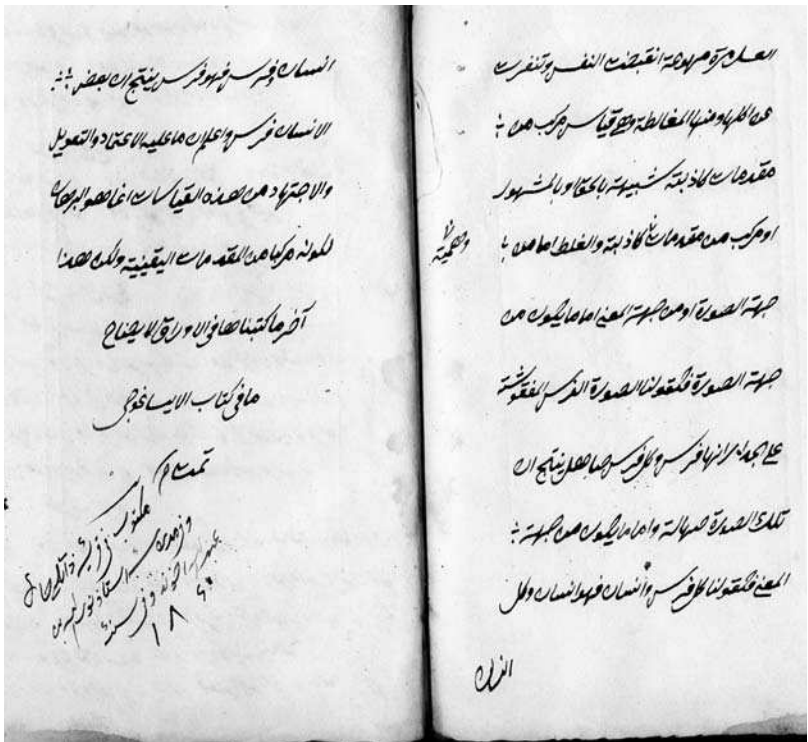 العسل مرة مهوعة انقبضت النفس وتنفرت
عن اكلها ومنها المغالطة وهي قياس مركب من
مقدمات كاذبة شبيهة بالحق او بالمشهور
او مركب من مقدمات كاذبة والغلط اما من
وهمية
جهة الصورة او من جهة المعنى اما ما يكون من
جهة الصورة فكقولنا الصورة الفرس المنقوشة
على الجدار انها فرس وكل فرس صاهل ينتج ان
تلك الصورة صهالة واما ما يكون من جهة
المعنى فكقولنا كل فرس وانسان فهو انسان وكل
انسان وفرس فهو فرس ينتج ان بعض
الانسان فرس واعلم ان ما عليه الاعتماد والتعويل
والاجتهاد من هذه القياسات انما هو البرهان
لكونه مركبا من المقدمات اليقينية وليكن هذا
آخر ما كتبناها فى الاوراق لايضاح
ما فى كتاب الايساغوجى
تمت م